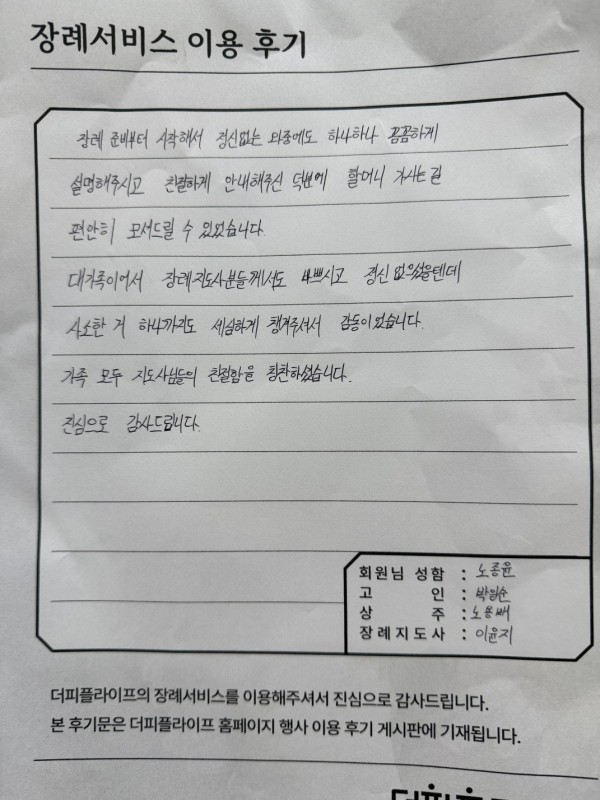 장례서비스 이용 후기
장례 준비부터 시작해서 정신없는 와중에도 하나하나 꼼꼼하게
설명해주시고 친절하게 안내해주신 덕분에 할머니 가시는길
편안히 모셔드릴 수 있었습니다.
대가족이어서 장례지도사분들께서도 바쁘시고 정신 없으셨을텐데
사소한 거 하나까지도 세심하게 챙겨주셔서 감동이었습니다.
가족 모두 지도사님들의 친절함을 칭찬하셨습니다.
진심으로 감사드립니다.
회원님 성함 : 노종윤
고 인 :
상 주 : 노용배
장례지도사 : 이윤지
더피플라이프의 장례서비스를 이용해주셔서 진심으로 감사드립니다.
본 후기문은 더피플라이프 홈페이지 행사 이용 후기 게시판에 기재됩니다.